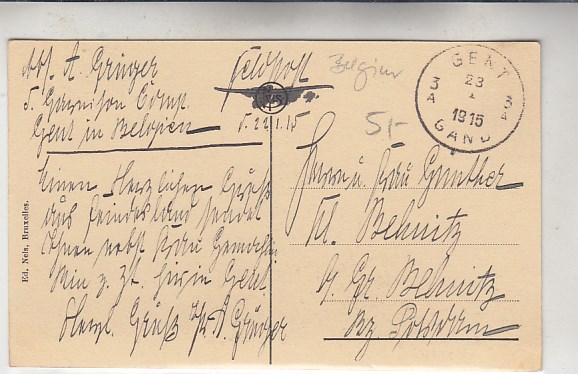 Abs. A. Grüger
5. Garnison Comp.
Gent in Belgien
Feldpost
Belgien
d. 22.1.15
5/-
GENT
3A 23 1 1915 3A
GAND
Einen Herzlichen Gruß
aus Feindesland sendet
Ihnen nebst Frau Gemahlin
Bin z. Zt. hier in Gent
Herzl. Gruß A. Grüger
Herrn u. Frau Günther
Kl. Behnitz
b. Gr. Behnitz
Bz. Potsdam
Ed. Nels, Bruxelles.